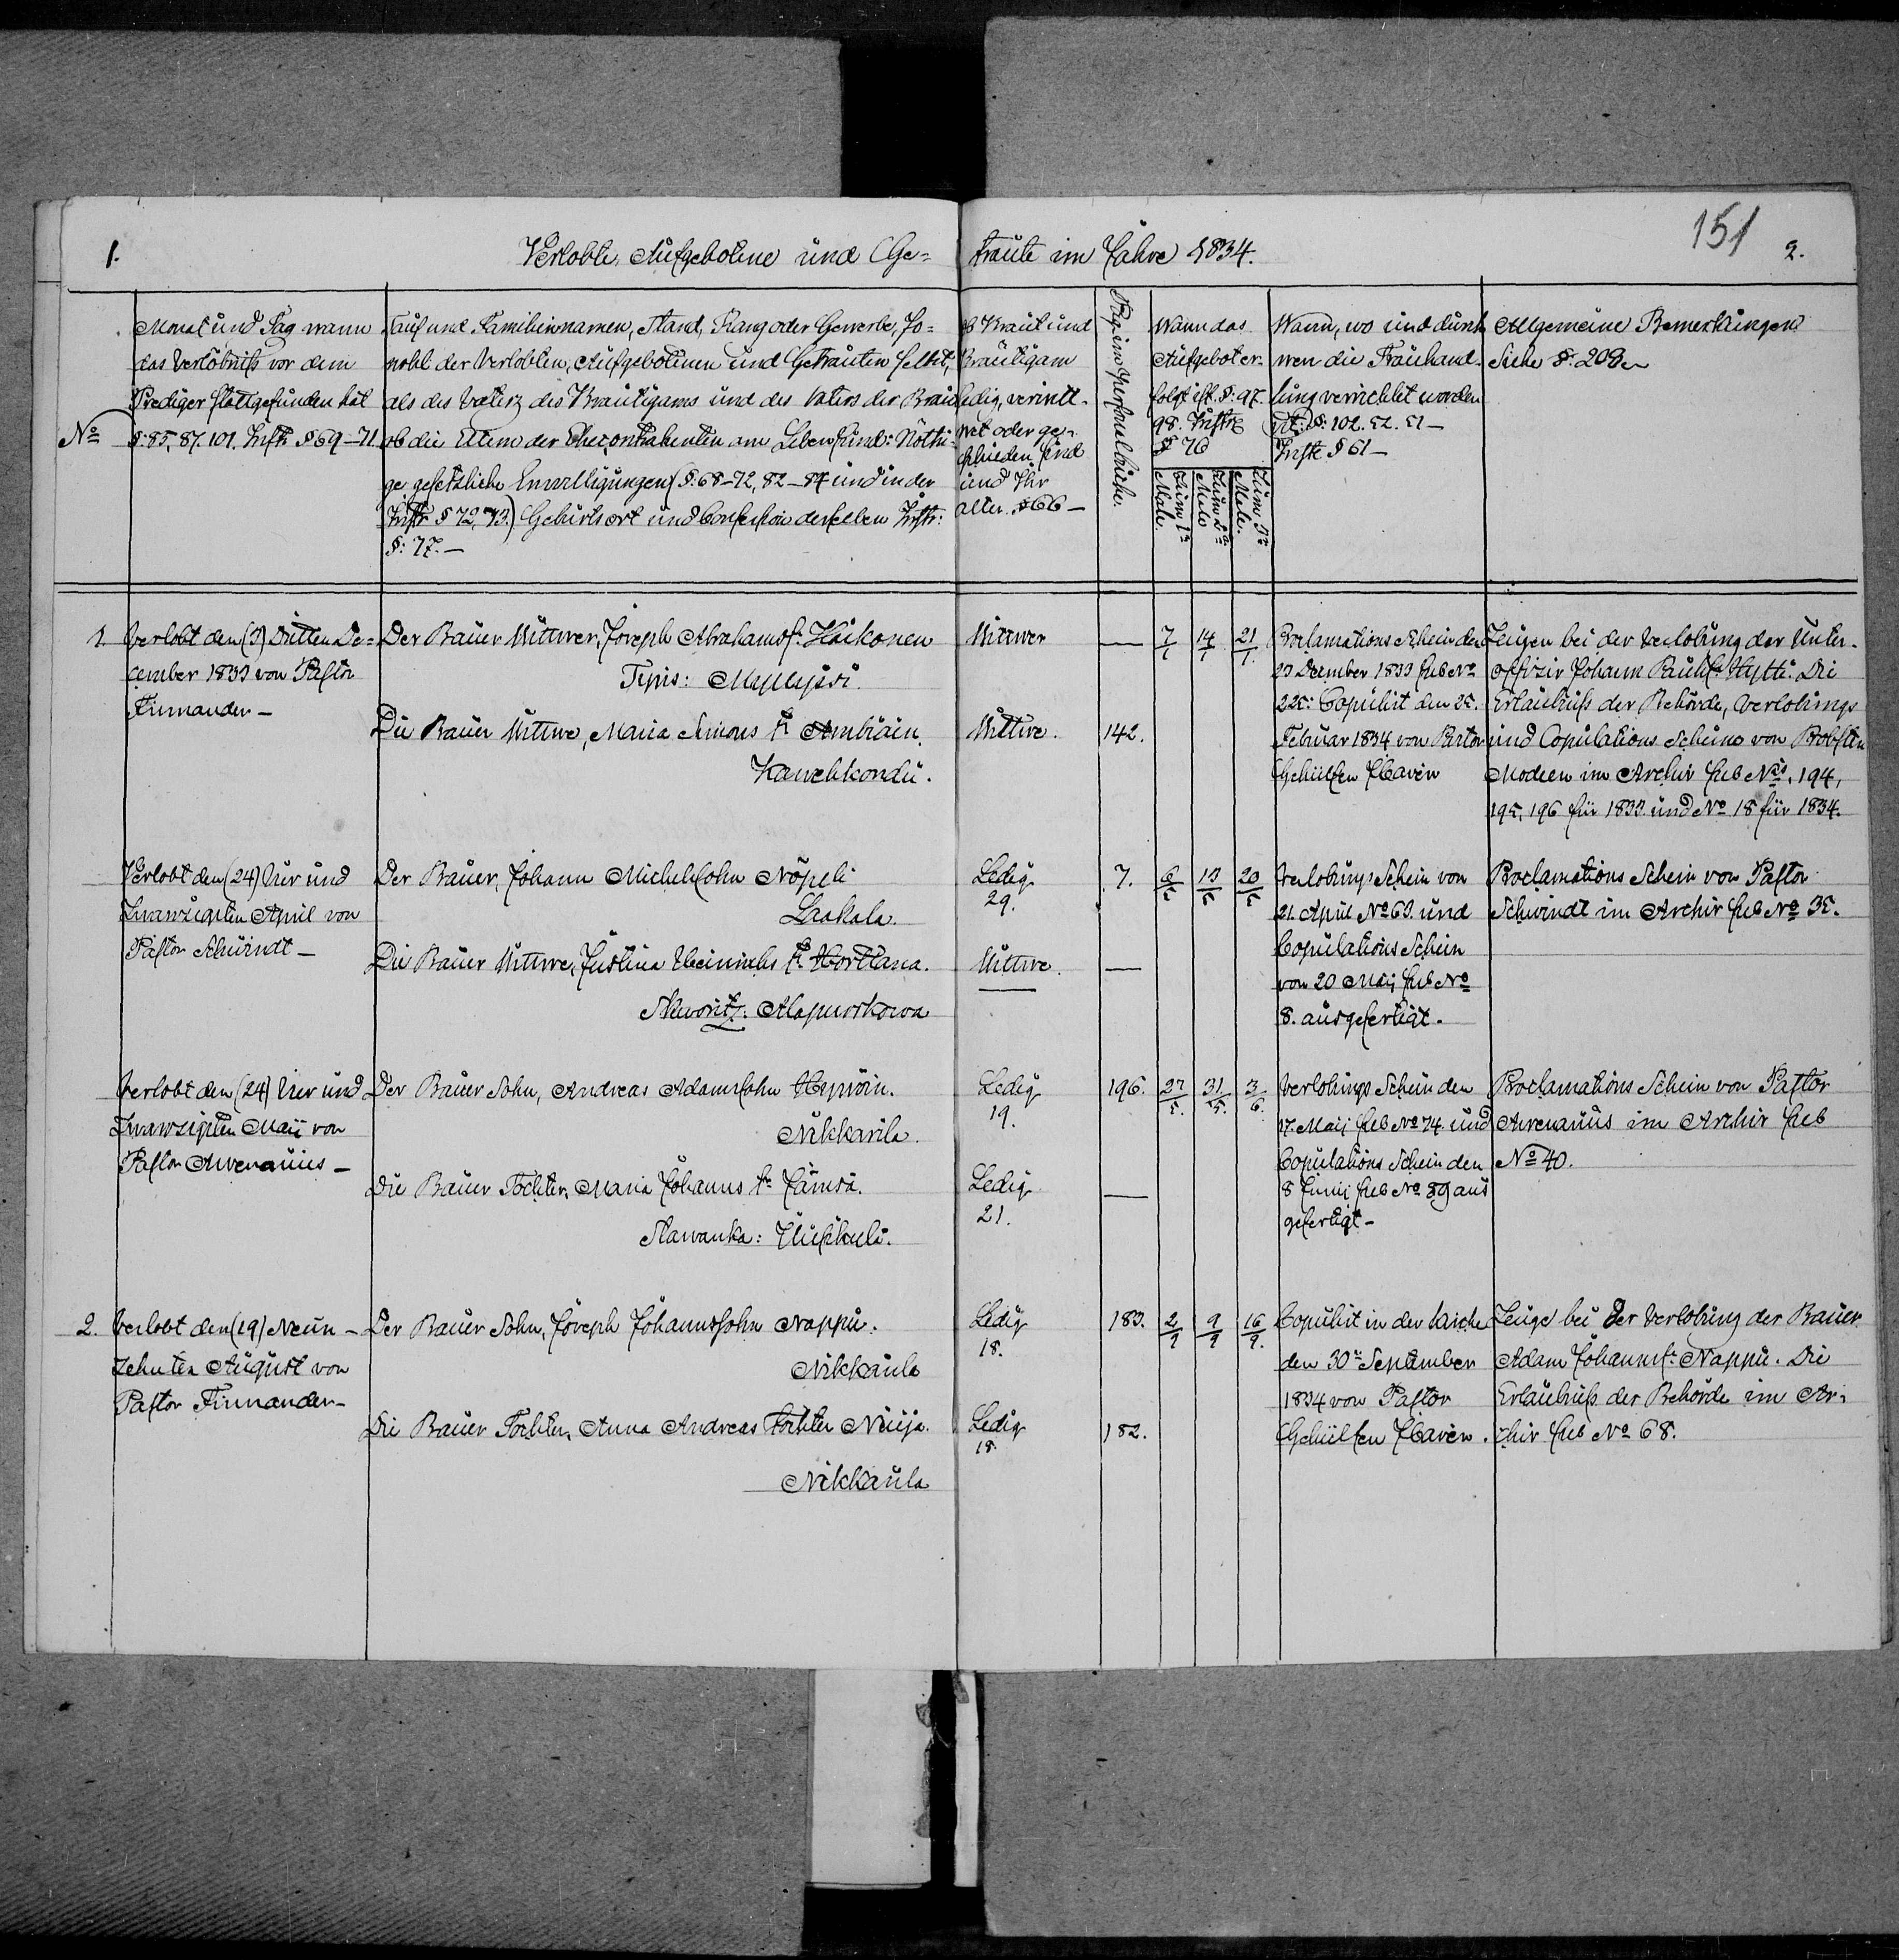 151
1.
Verlobte, Aufgebotene und Ge=
traute im Jahre 1834.
2.
No
Monat und Tag wann
das Verlöbniß vor dem
Prediger stattgefunden hat
§: 85, 87. 101. Instr. § 69-71.
Tauf und Familiennamen, Stand, Rang oder Gewerbe, so=
wohl der Verlobten, Aufgebotenen und Getrauten selbst,
als des Vaters des Bräutigams und des Vaters der Braut
ob die Eltern der Ehecontrahenten am Leben sind: Nöthi=
ge gesetzliche Einwilligungen (§: 68-72, 82-84 und in der
Instr § 72, 73.) Geburtsort und Confession derselben Instr:
§: 77.-
Ob Braut und
Bräutigam
ledig, verwitt-
wet oder ge-
schieden sind
und Ihr
alter. § 66-
Pag. im Personalbuche.
Wann das
Aufgebot er-
folgt ist. §: 97.
98. Instr
§ 76
Zum 1n
Male.
Zum 2n
Male
Zum 3n
Male.
Wann, wo und durch
wen die Trauhand-
lung verrichtet worden
ist: §: 102. 52. 51-
Instr § 61-
Allgemeine Bemerkungen
Siehe §: 208
1.
Verlobt den (3) Dritten De=
cember 1833 von Pastor
Finnander-
Der Bauer Wittwer, Joseph Abrahams. Häikönen
Tyris:
Wittwer
-
7/1
14/1
21/1.
Proclamations Schein den
23 December 1833 sub No
225: Copulirt den 25.
Februar 1834 von Pastor
Gehülfen Haven
Zeugen bei der Verlobung der Unter-
offizir Johann Paulis. Hytti. Die
Erlaubniß der Behörde, Verlobungs
und Copulations Scheine von Probsten
Modeen im Archiv sub Nis. 194,
195, 196 für 1833. und No 18 für 1834.
Die Bauer Wittwe, Maria Simons tr Ambiäin.
Kawehkondü.
Wittwe.
142.
Verlobt den (24) Vier und
Zwanzigsten April von
Pastor Schwindt-
Der Bauer, Johann Michelsohn Nöpeli
Laakala.
Ledig
29.
7.
6/5
13/5
20/5
Verlobungs Schein von
21. April No 63. und
Copulations Schein
von 20 Maij sub No
8. ausgefertigt.
Proclamations Schein von Pastor
Schwindt im Archiv sub No 35.
Die Bauer Wittwe, Justina Heinrichs tr Horttana.
Wittwe.
-
Verlobt den (24) Vier und
Zwanzigsten Maij von
Pastor Avenarius-
Der Bauer Sohn, Andreas Adamsohn Hyvöin.
Nikkarila.
Ledig
19.
196.
27/5.
31/5.
3/6.
Verlobungs Schein den
17. Maij sub No 74. und
Copulations Schein den
8 Junij sub No 89 aus
gefertigt-
Proclamations Schein von Pastor
Avenarius im Archiv sub
No 40.
Die Bauer Tochter, Maria Johanns tr Jämsä.
Slawanka:
Ledig
21.
-
2.
Verlobt den (19) Neun-
zehnten August von
Pastor Finnander-
Der Bauer Sohn, Joseph Johannssohn Nappu.
Nikkaula
Ledig
18.
183.
2/9
9/9
16/9.
Copulirt in der Kirche
den 30n September
1834 von Pastor
Gehülfen Haven.
Zeuge bei der Verlobung der Bauer
Adam Johanns. Nappu. Die
Erlaubniß der Behörde im Ar-
chiv sub No 68.
Die Bauer Tochter, Anna Andreas tochter Niuja.
Nikkaula
Ledig
18.
182.